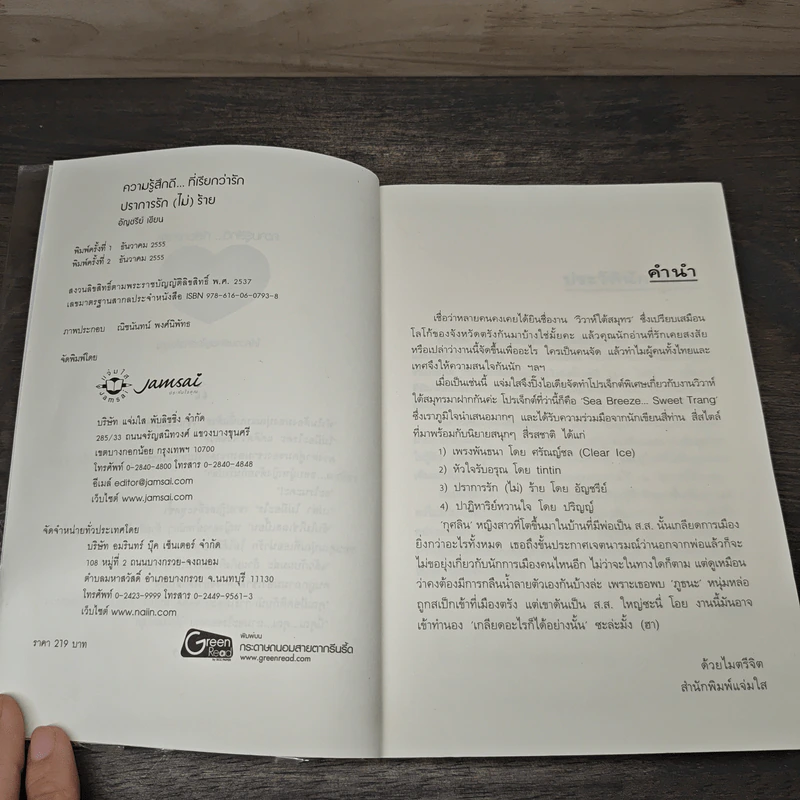 ความรู้สึกดี... ที่เรียกว่ารัก
ปราการรัก (ไม่) ร้าย
อัญชรีย์ เขียน
พิมพ์ครั้งที่ 1 ธันวาคม 2555
พิมพ์ครั้งที่ 2 ธันวาคม 2555
สงวนลิขสิทธิ์ตามพระราชบัญญัติลิขสิทธิ์ พ.ศ. 2537
เลขมาตรฐานสากลประจำหนังสือ ISBN 978-616-06-0793-8
ภาพประกอบ ณิชนันทน์ พงศ์นิพัทธ
จัดพิมพ์โดย
แจ่มใส
JAMSAI
Jamsai
บริษัท แจ่มใส พับลิชชิ่ง จำกัด
285/33 ถนนจรัญสนิทวงศ์ แขวงบางขุนศรี
เขตบางกอกน้อย กรุงเทพฯ 10700
โทรศัพท์ 0-2840-4800 โทรสาร 0-2840-4848
อีเมล์ editor@jamsai.com
เว็บไซต์ www.jamsai.com
จัดจำหน่ายทั่วประเทศโดย
บริษัท อมรินทร์ บุ๊ค เซ็นเตอร์ จำกัด
108 หมู่ที่ 2 ถนนบางกรวย-จงถนอม
ตำบลมหาสวัสดิ์ อำเภอบางกรวย จ.นนทบุรี 11130
โทรศัพท์ 0-2423-9999 โทรสาร 0-2449-9561-3
เว็บไซต์ www.naiin.com
ราคา 219 บาท
Green Read
พิมพ์บน
กระดาษถนอมสายตากรีนรี้ด
www.greenread.com
คำนำ
เชื่อว่าหลายคนคงเคยได้ยินชื่องาน 'วิวาห์ใต้สมุทร' ซึ่งเปรียบเสมือน
โลโก้ของจังหวัดตรังกันมาบ้างใช่มั้ยคะ แล้วคุณนักอ่านที่รักเคยสงสัย
หรือเปล่าว่างานนี้จัดขึ้นเพื่ออะไร ใครเป็นคนจัด แล้วทำไมผู้คนทั้งไทยและ
เทศจึงให้ความสนใจกันนัก ฯลฯ
เมื่อเป็นเช่นนี้ แจ่มใสจึงปิ๊งไอเดียจัดทำโปรเจ็กต์พิเศษเกี่ยวกับงานวิวาห์
ใต้สมุทรมาฝากกันค่ะ โปรเจ็กต์ที่ว่านี้ก็คือ 'Sea Breeze... Sweet Trang'
ซึ่งเราภูมิใจนำเสนอมากๆ และได้รับความร่วมมือจากนักเขียนสี่ท่าน สี่สไตล์
ที่มาพร้อมกับนิยายสนุกๆ สี่รสชาติ ได้แก่
1) เพรงพันธนา โดย ศรัณญ์ชล (Clear Ice)
2) หัวใจรับอรุณ โดย tintin
3) ปราการรัก (ไม่) ร้าย โดย อัญชรีย์
4) ปาฏิหาริย์หวานใจ โดย ปริญญ์
'กุศลิน' หญิงสาวที่โตขึ้นมาในบ้านที่มีพ่อเป็น ส.ส. นั้นเกลียดการเมือง
ยิ่งกว่าอะไรทั้งหมด เธอถึงขั้นประกาศเจตนารมณ์ว่านอกจากพ่อแล้วก็จะ
ไม่ขอยุ่งเกี่ยวกับนักการเมืองคนไหนอีก ไม่ว่าจะในทางใดก็ตาม แต่ดูเหมือน
ว่าคงต้องมีการกลืนน้ำลายตัวเองกันบ้างล่ะ เพราะเธอพบ 'ภูธนะ' หนุ่มหล่อ
ถูกสเป็กเข้าที่เมืองตรัง แต่เขาดันเป็น ส.ส. ใหญ่ซะนี่ โอย งานนี้มันอาจ
เข้าทำนอง 'เกลียดอะไรก็ได้อย่างนั้น' ซะล่ะมั้ง (ฮา)
ด้วยไมตรีจิต
สำนักพิมพ์แจ่มใส